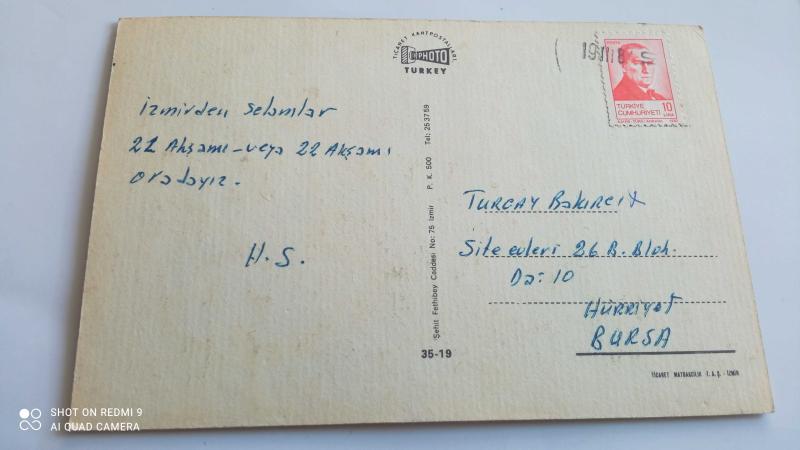 TİCARET KARTPOSTALLARI
PHOTO
TURKEY
POSTA
TÜRKİYE
CUMHURİYETİ
10
LİRA
İzmirden Selamlar
21 Akşamı-veya 22 Akşamı
oradayız.
H.S.
Şehit Fethibey Caddesi No: 75 İzmir P. K. 500 Tel: 253759
TURCAY
Siteevleri 26 B. Blok.
Da: 10
Hürriyet
BURSA
35-19
TİCARET MATBAACILIK T.A.Ş. - İZMİR
SHOT ON REDMI 9
AI QUAD CAMERA